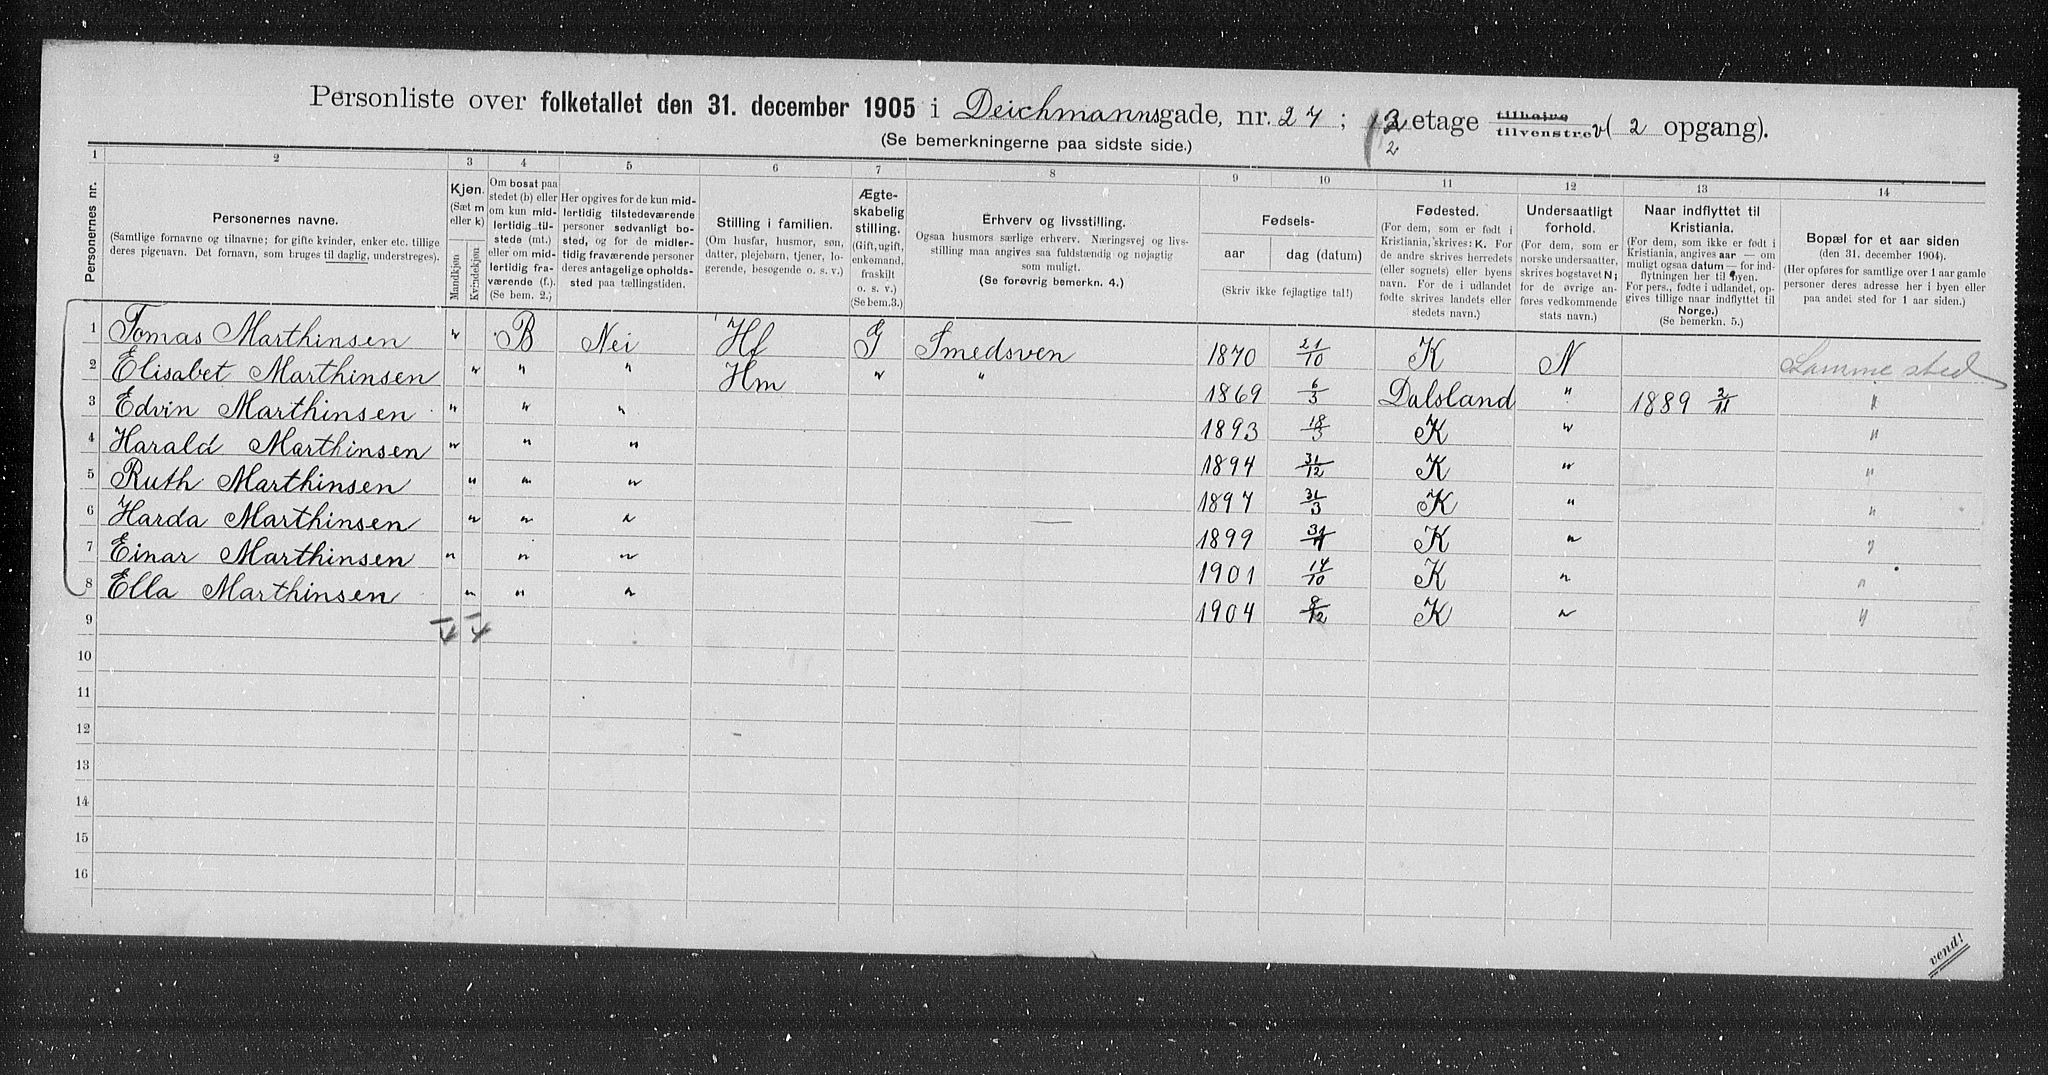 Personliste over folketallet den 31. december 1905 i Deichmannsgade, nr. 27; etage tilhøire tilvenstre v (2 opgang).
(Se bemerkningerne paa sidste side.)
1 2 3 4 5 6 7 8 9 10 11 12 13 14
Personernes nr.
Personernes navne.
(Samtlige fornavne og tilnavne; for gifte kvinder, enker etc. tillige deres pigenavn. Det fornavn, som bruges til daglig, understreges).
Kjøn. (Sæt m eller k)
Mandkjøn Kvindekjøn
Om bosat paa stedet (b) eller om kun midlertidig tilstede (mt.) eller om midlertidig fraværende (f.). (Se bem. 2.)
Her opgives for de kun midlertidig tilstedeværende personer sedvanligt bosted, og for de midlertidig fraværende personer deres antagelige opholdssted paa tællingstiden.
Stilling i familien.
(Om husfar, husmor, søn, datter, plejebarn, tjener, logerende, besøgende o. s. v.)
Ægteskabelig stilling.
(Gift, ugift, enkemand, fraskilt o. s. v.) (Se bem. 3.)
Erhverv og livsstilling.
Ogsaa husmors særlige erhverv. Næringsvej og livsstilling maa angives saa fuldstændig og nøjagtig som muligt.
(Se forøvrig bemerkn. 4.)
Fødsels-
aar dag (datum)
(Skriv ikke fejlagtige tal!)
Fødested.
(For dem, som er født i Kristiania, skrives: K. For de andre skrives herredets (eller sognets) eller byens navn. For de i udlandet fødte skrives landets eller stedets navn.)
Undersaatligt forhold.
(For dem, som er norske undersaatter, skrives bogstavet N; for de øvrige anføres vedkommende stats navn.)
Naar indflyttet til Kristiania.
(For dem, som ikke er født i Kristiania, angives aar — om muligt ogsaa datum — for indflytningen her til byen. For pers., fødte i udlandet, opgives tillige naar indflyttet til Norge.)
(Se bemerkn. 5.)
Bopæl for et aar siden
(den 31. december 1904).
(Her opføres for samtlige over 1 aar gamle personer deres adresse her i byen eller paa andet sted for 1 aar siden.)
1 Tomas Marthinsen " B Nei Hf G Smedsven 1870 21/10 K N Samme sted
2 Elisabet Marthinsen " " " Hm " " 1869 6/3 Dalsland " 1889 2/11 "
3 Edvin Marthinsen " " " 1893 18/3 K " "
4 Harald Marthinsen " " " 1894 31/12 K " "
5 Ruth Marthinsen " " " 1897 31/3 K " "
6 Harda Marthinsen " " " 1899 K " "
7 Einar Marthinsen " " " 1901 14/10 K " "
8 Ella Marthinsen " " " 1904 9/12 K " "
9
10
11
12
13
14
15
16
vend!